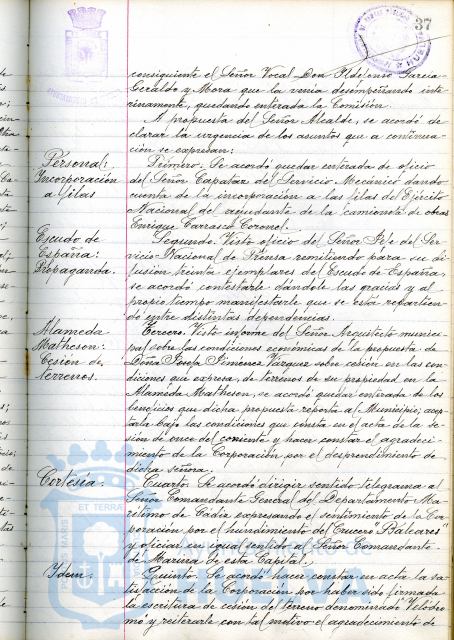 37
consiguiente el Señor Vocal Don Ildefonso Garcia
Geraldo y Mora que la venia desempeñando inte
rinamente, quedando enterada la Comisión.
A propuesta del Señor Alcalde, se acordó de
clarar la urgencia de los asuntos que a continua-
ción se expresan:
Personal:
Incorporación
a filas
Primero. Se acordó quedar enterada de oficio
del Señor Capataz del Servicio Mecánico dando
cuenta de la incorporación a las filas del Ejército
Nacional del ayudante de la camioneta de obras
Enrique Carrasco Coronel.
Escudo de
España:
Propaganda.
Segundo. Visto oficio del Señor Jefe del Ser-
vicio Nacional de Prensa remitiendo para su di
fusión treinta ejemplares del Escudo de España,
se acordó contestarle dándole las gracias y al
propio tiempo manifestarle que se está repartien
do entre distintas dependencias.
Alameda
Matheson:
Cesión de
terrenos.
Tercero. Visto informe del Señor Arquitecto munici-
pal sobre las condiciones económicas de la propuesta de
Doña Josefa Jiménez Vazquez sobre cesión en las con-
diciones que expresa, de terrenos de su propiedad en la
Alameda Matheson, se acordó quedar enterada de los
beneficios que dicha propuesta reporta al Municipio, acep-
tarla bajo las condiciones que consta en el acta de la se
sión de once del corriente y hacer constar el agradeci-
miento de la Corporación, por el desprendimiento de
dicha señora.
Cortesía:
Cuarto. Se acordó dirigir sentido telegrama al
Señor Comandante General del Departamento Ma
rítimo de Cádiz expresando el sentimiento de la Cor
poración por el hundimiento del Crucero "Baleares"
y oficiar en igual sentido al Señor Comandante
de Marina de esta Capital.
Idem:
Quinto. Se acordó hacer constar en acta la sa-
tisfacción de la Corporación por haber sido firmada
la escritura de cesión del terreno denominado Velodro
mo y reiterarle con tal motivo el agradecimiento de
ET TERRA